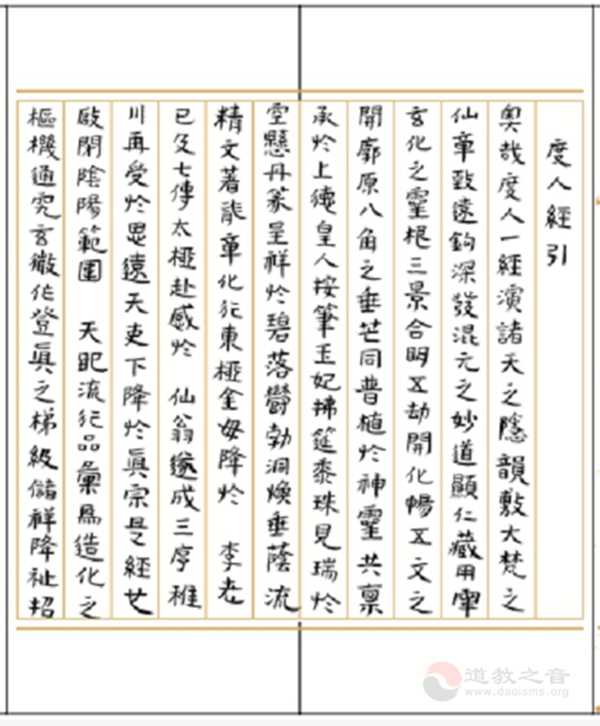 度人經引
奧哉度人一經演諸天之隱韻敷大梵之
仙章致遠鈎深發混元之妙道顯仁藏用
玄化之靈根三景合明五劫開化暢五文之
開廓原八角之垂芒同普植於神靈共稟
承於上德皇人按筆玉妃拂筵黍珠見瑞於
空懸丹篆呈祥於碧落欝勃洞煥垂蔭流
精文著龍章化行東極金母降於 李老
已及七傳太極赴感於 仙翁遂成三序稚
川再受於思遠天吏下降於真宗是經也
啟閉陰陽範圍 天地流行品彙為造化之
樞機通究玄微作登真之梯級儲祥降祉招
道教之音
www.daoisms.org